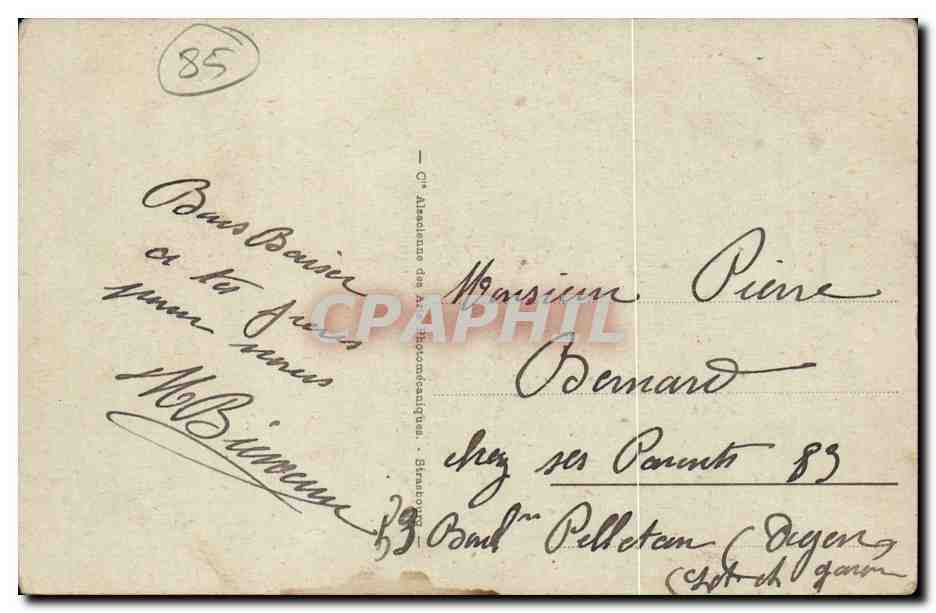 85
Bons Baiser
a tes frères
pour nous
— Cie Alsacienne des Arts Photomécaniques. - Strasbourg
CPAPHIL
Monsieur Pierre
Bernard
chez ses Parents 83
53 Boul Pelletan (Agen
(Lot et garon